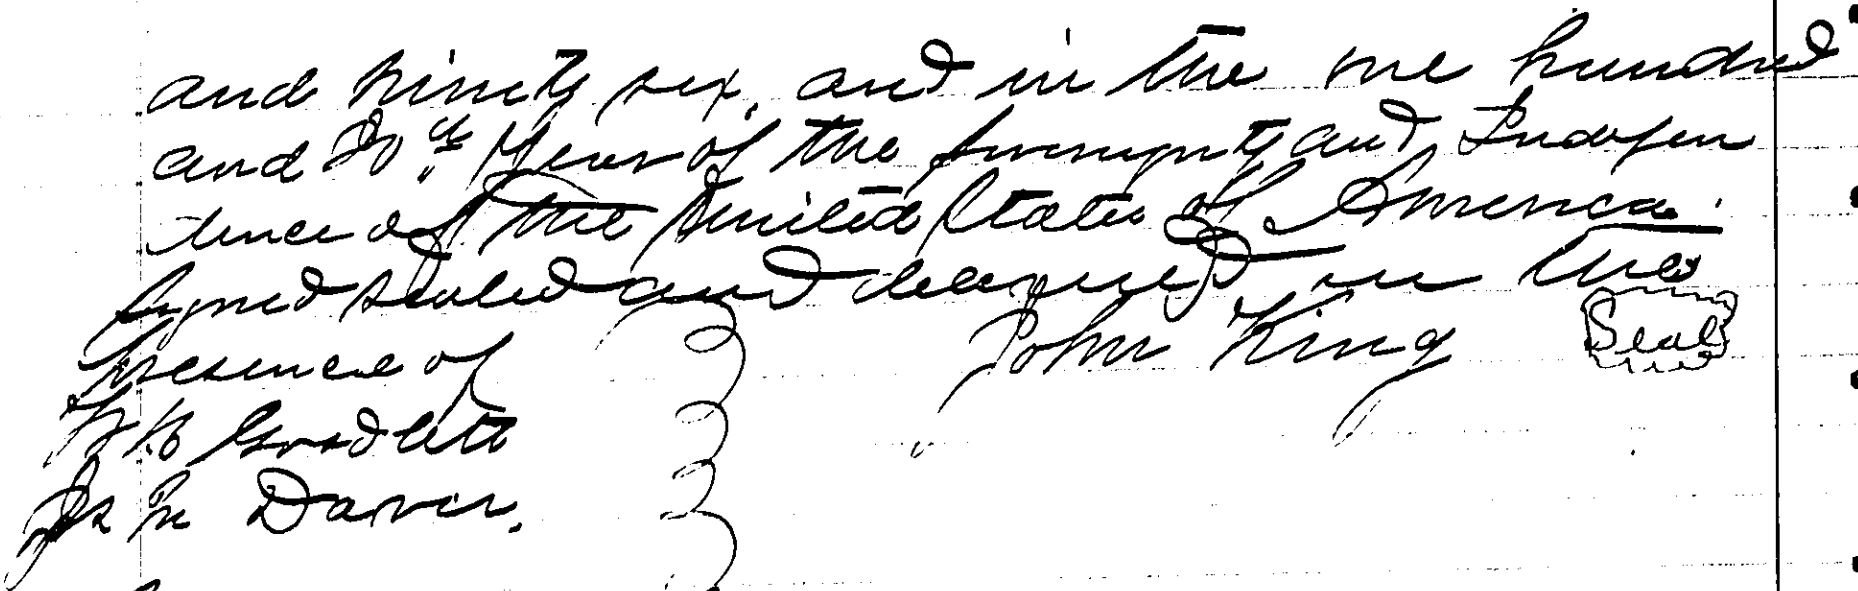 and ninety six, and in the one hundred
and 20th Year of the sovereignty and Indepen
dence of the United States of America.
Signed sealed and delivered in the
presence of John King Seal
Goodlett
Davis.